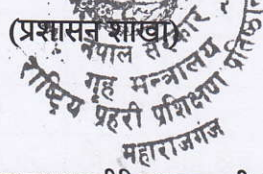 (प्रशासन शाखा)
नेपाल सरकार
गृह मन्त्रालय
राष्ट्रिय प्रहरी प्रशिक्षण प्रतिष्ठान
महाराजगंज